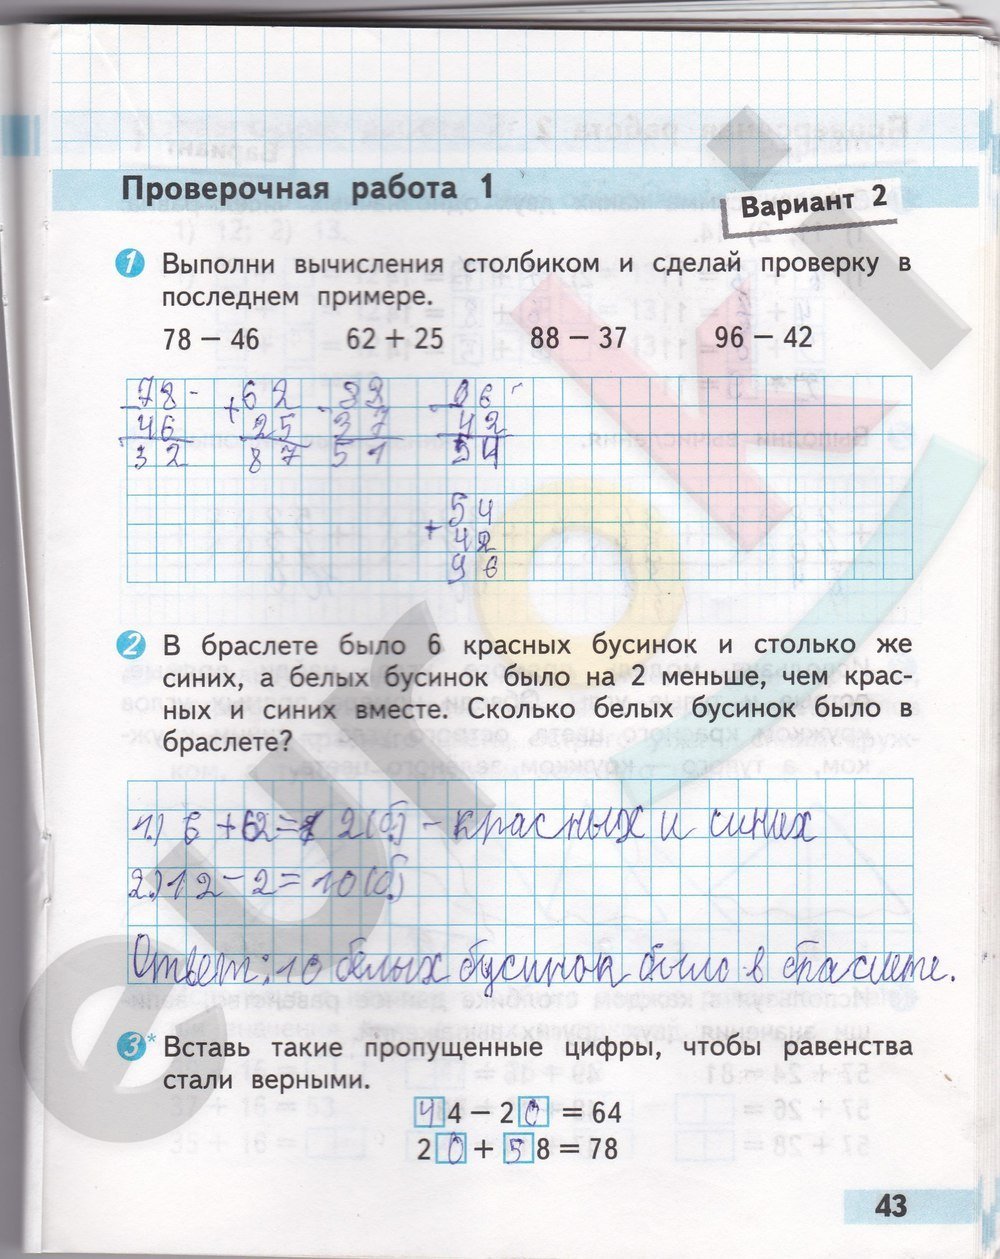 Проверочная работа 1
Вариант 2
1 Выполни вычисления столбиком и сделай проверку в
последнем примере.
78 − 46 62 + 25 88 − 37 96 − 42
− 78 + 62 − 88 − 96
46 25 37 42
32 87 51 54
+ 54
42
96
2 В браслете было 6 красных бусинок и столько же
синих, а белых бусинок было на 2 меньше, чем крас-
ных и синих вместе. Сколько белых бусинок было в
браслете?
1.) 6 + 62 = 12 (б) - красных и синих
2.) 12 - 2 = 10 (б)
Ответ: 10 белых бусинок было в браслете.
3* Вставь такие пропущенные цифры, чтобы равенства
стали верными.
44 − 20 = 64
20 + 58 = 78
43
euroki